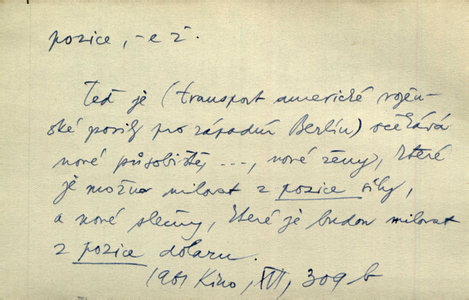 pozice, -e ž.
Teď je (transport americké vojen-
ské posily pro západní Berlín) očekává
nové působiště, ..., nové ženy, které
je možno milovat z pozice síly,
a nové slečny, které je budou milovat
z pozice dolaru.
1961 Kino, XVI, 309 b